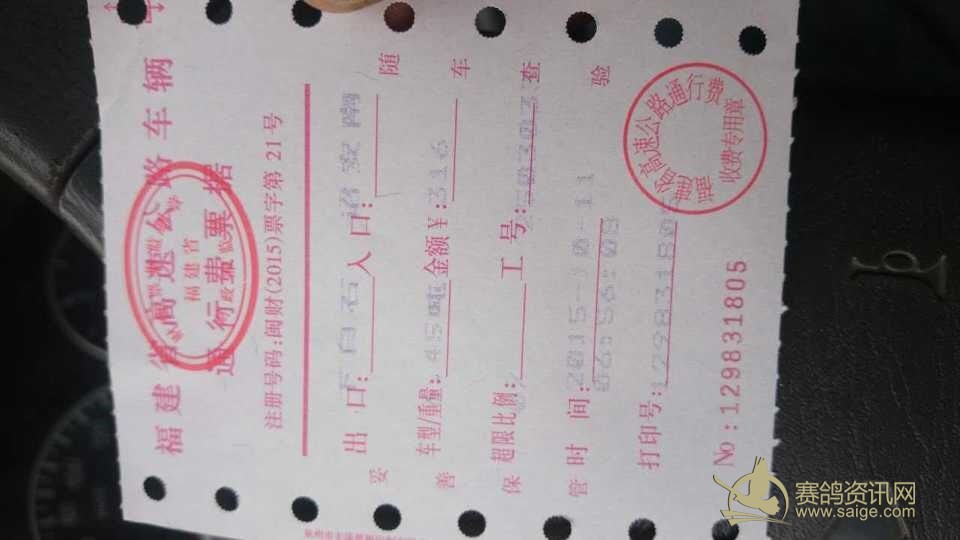 福建省高速公路车辆
通行费票据
福建省
注册号码:闽财(2015)票字第 21号
出 口:下白石 入 口:
车型/重量:4.50吨 金额￥:316
超限比例: 工 号:
时 间:2015-10-11
06:56:08
打印号:129831805
No:129831805
妥善保管
随车查验
福建省高速公路通行费
收费专用章
赛鸽资讯网
www.saige.com